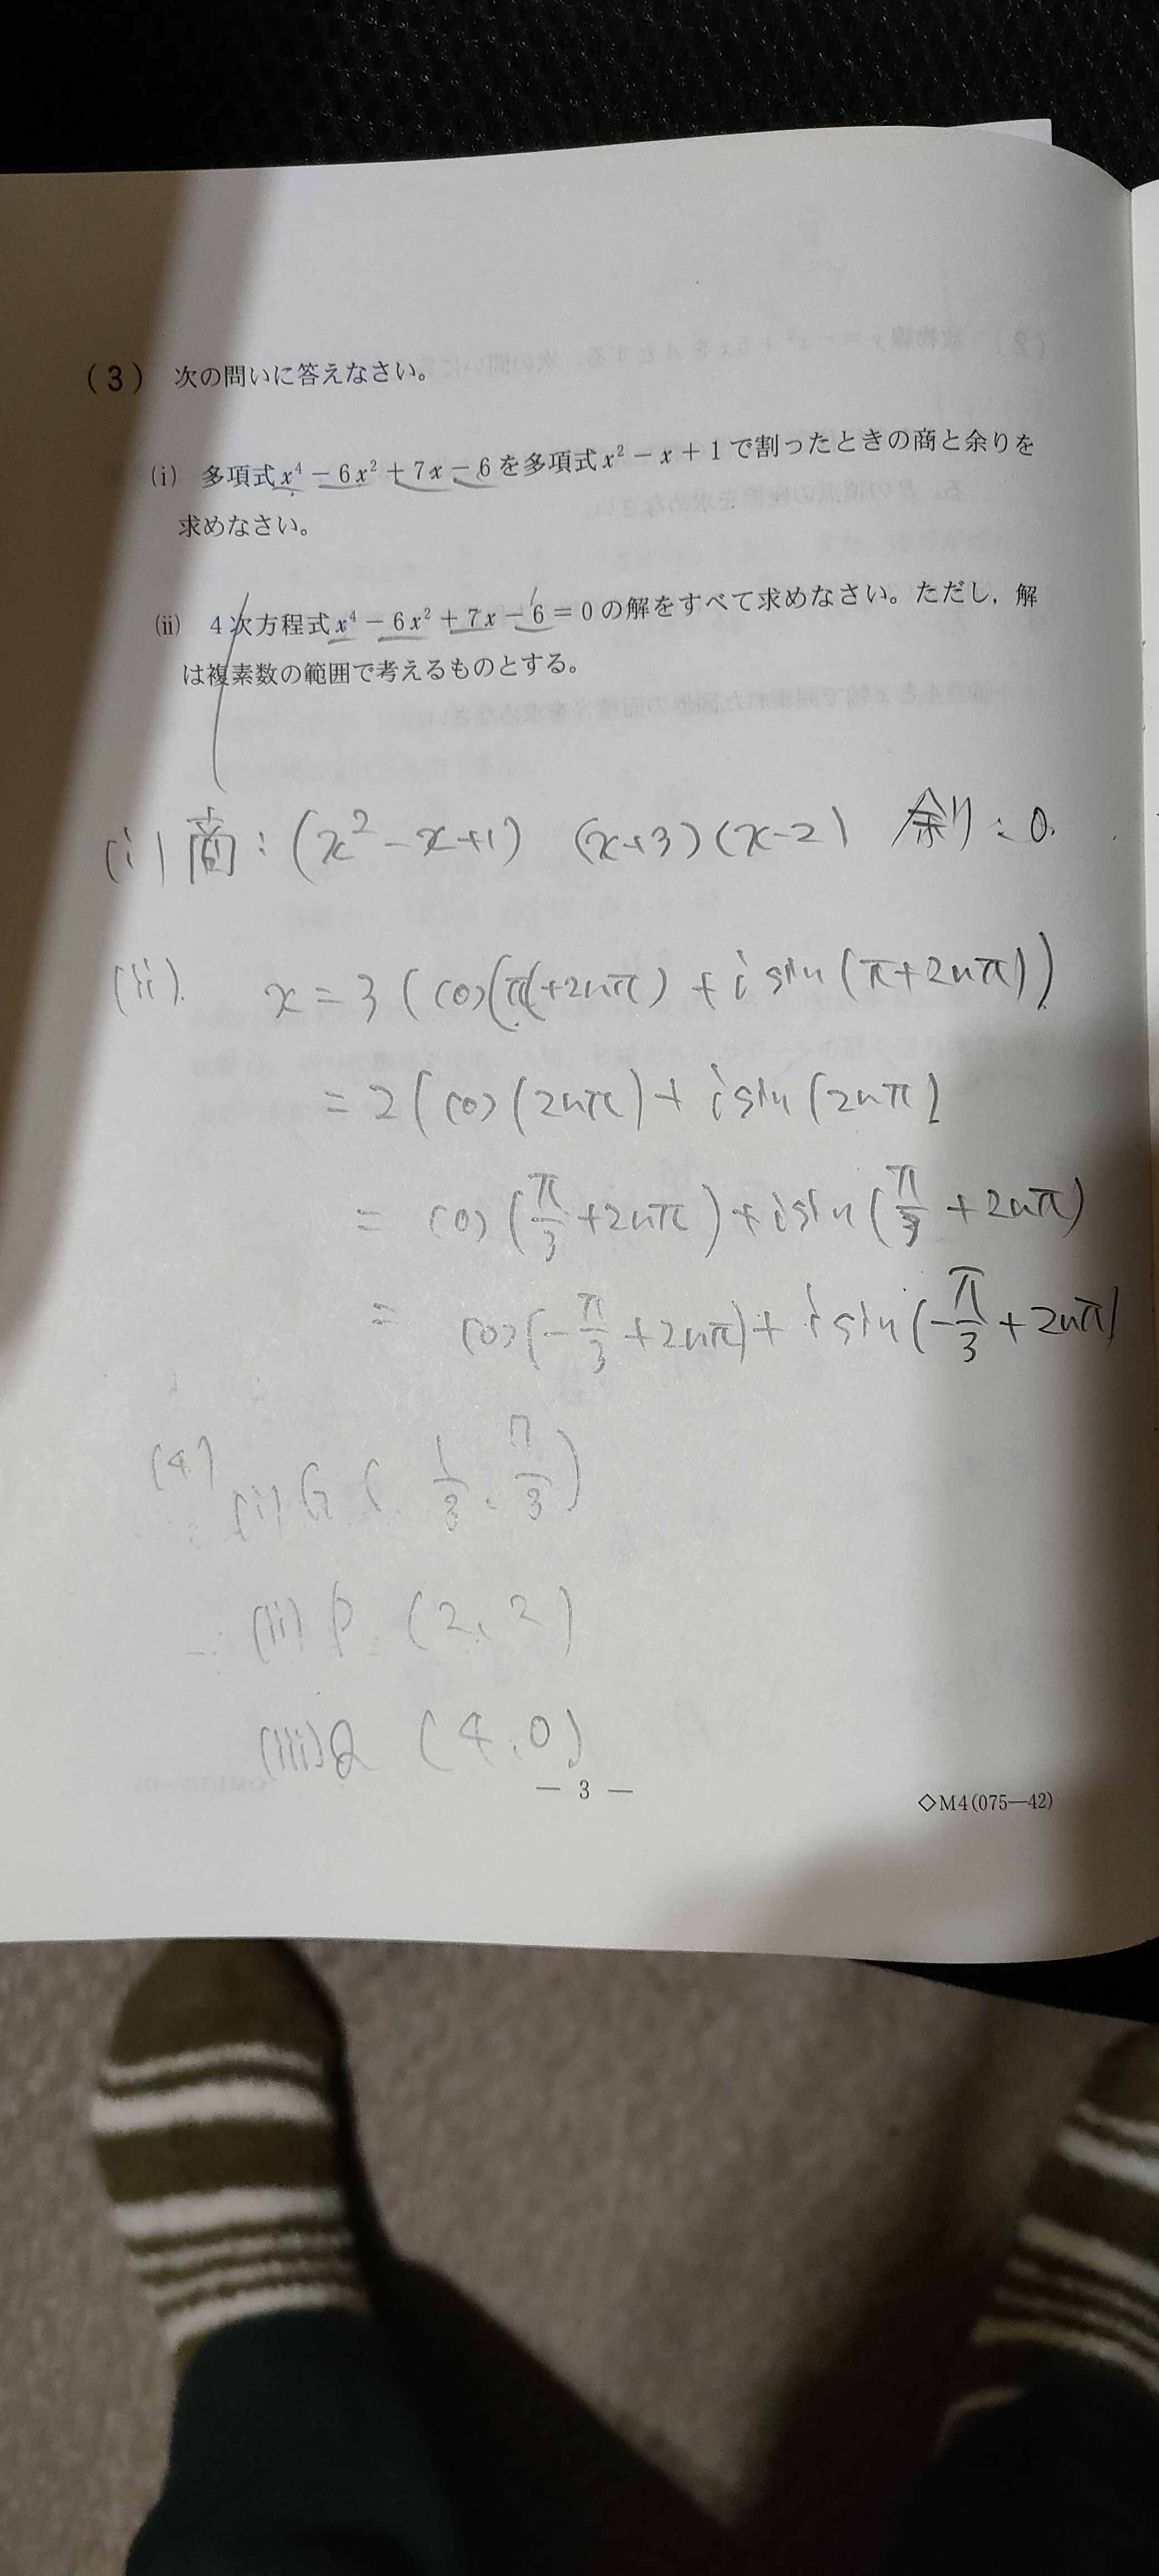 (3) 次の問いに答えなさい。
(i) 多項式 x⁴ − 6x² + 7x − 6 を多項式 x² − x + 1 で割ったときの商と余りを
求めなさい。
(ii) 4次方程式 x⁴ − 6x² + 7x − 6 = 0 の解をすべて求めなさい。ただし，解
は複素数の範囲で考えるものとする。
(i) 商 : (x² − x + 1) (x+3)(x−2) 余り : 0.
(ii). x = 3 (cos(π+2nπ) + i sin (π+2nπ))
= 2 (cos (2nπ) + i sin (2nπ)
= cos (π/3 + 2nπ) + i sin (π/3 + 2nπ)
= cos(−π/3 + 2nπ) + i sin (−π/3 + 2nπ)
(4)
(i) G ( 1/3, 7/3 )
(ii) P (2, 2)
(iii) Q (4, 0)
— 3 —
◇M4(075—42)